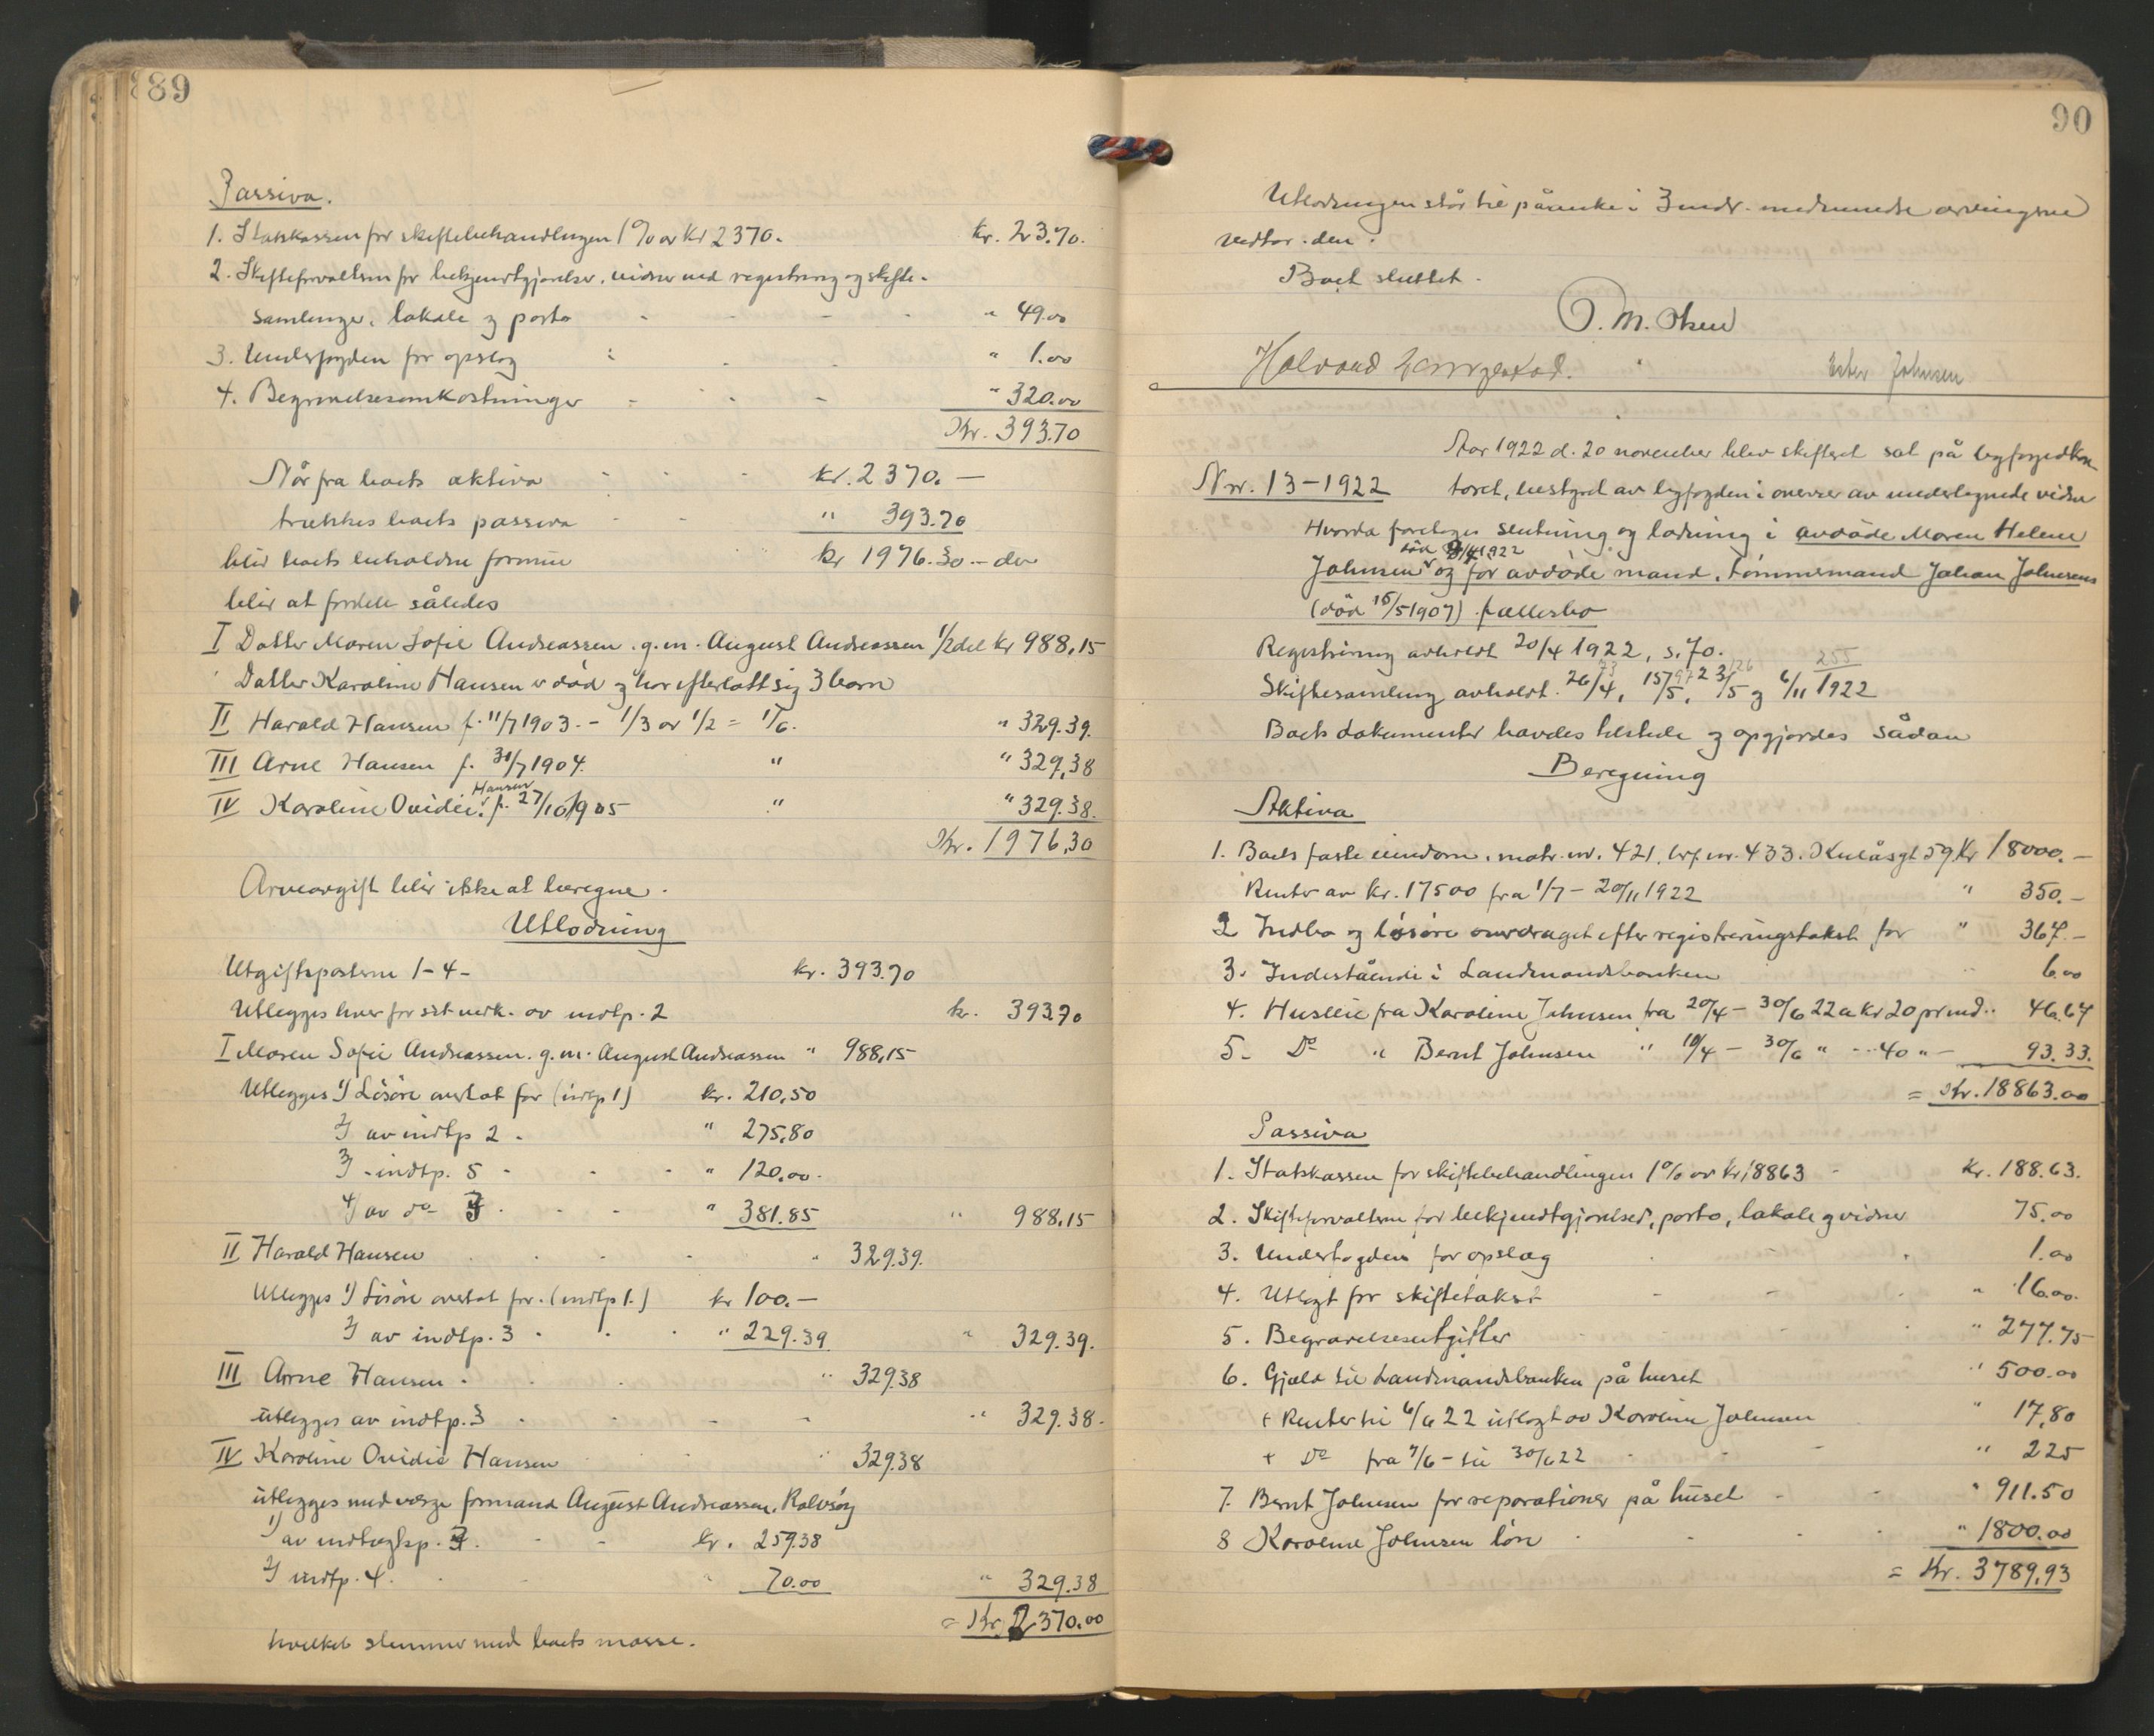 89
Passiva.
1. Statskassen for skiftebehandlingen 1% av kr 2370. kr. 23.70.
2. Skifteforvalteren for bekjendtgjørelser, vidner ved registrering og skifte-
samlinger, lokale og porto - - - - " 49.00
3. Underfogden for opslag " 1.00
4. Begravelsesomkostninger - - - " 320.00
Kr. 393.70
Når fra boets aktiva - - - kr. 2370.—
trækkes boets passiva - - " 393.70
blir boets beholdne formue kr 1976.30 - der
blir at fordele således
I Datter Maren Sofie Andreassen. g.m. August Andreassen 1/2 del kr 988,15
Datter Karoline Hansen er død og har efterlatt sig 3 barn
II Harald Hansen f. 11/7 1903. - 1/3 av 1/2 = 1/6. " 329.39.
III Arne Hansen f. 30/7 1904. " " 329,38
IV Karoline Ovidie Hansen f. 27/10 1905 " " 329.38.
Kr. 1976,30
Arveavgift blir ikke at beregne.
Utlodning
Utgiftsposterne 1-4- kr. 393.70
Utlegges hver for sit vedk. av indtp. 2 kr. 393.70
I Maren Sofie Andreassen. g.m. August Andreassen " 988,15
Utlegges 1) Løsøre overtat for (indtp 1) kr. 210,50
2) av indtp 2 - " 275,80
3) - indtp. 5 - - - " 120,00.
4) av do 3 - - - " 381.85 " 988,15
II Harald Hansen " 329.39.
Utlegges 1) Løsøre overtat for. (indtp 1.) kr 100.—
2) av indtp. 3 - - - " 229.39 " 329.39.
III Arne Hansen - " 329.38
utlegges av indtp. 3 - - - - " 329.38.
IV Karoline Ovidie Hansen " 329.38
utlegges med værge formand August Andreassen, Rolvsøy
1) av indtægtsp. 3. - - kr. 259.38
2) indtp. 4. " 70.00 " 329.38
= Kr. 2370.00
hvilket stemmer med boets masse.
90
Utlodningen står til påanke i 3 mdr. medmindre arvingerne
vedtar den.
Boet sluttet.
O. M. Olsen
Halvard Ester Johnsen
Aar 1922 d. 20 november blev skifteret sat på byfogedkon-
Nr. 13-1922 toret, bestyret av byfogden i overvær av undertegnede vidner
Hvorda foretoges slutning og lodning i avdøde Maren Helene
død 9/4 1922
Johnsen og før avdøde mand, tømmermand Johan Johnsens
(død 15/5 1907) fællesbo
Registrering avholdt 20/4 1922, s. 70.
Skiftesamling avholdt 26/4, 15/5, 23/5 og 6/11 1922
73 97 126 255
Boets dokumenter havdes tilstede og opgjordes sådan
Beregning
Aktiva
1. Boets faste eiendom, matr. nr. 421, brf. nr. 433. Kulåsgt 59 Kr 18000.—
Renter av kr. 17500 fra 1/7 - 20/11 1922 " 350.—
2 Indbo og løsøre overdraget efter registreringstakst for " 367.—
3. Indestående i Landmandsbanken " 6.00
4. Husleie fra Karoline Johnsen fra 20/4 - 30/6 22 a kr 20 pr md.. 46.67
5. Do " Bernt Johnsen " 10/4 - 30/6 " - 40 " - 93.33.
= Kr. 18863.00
Passiva
1. Statskassen for skiftebehandlingen 1% av kr 18863 - Kr. 188.63.
2. Skifteforvalteren for bekjendtgjørelser, porto, lokale og vidner 75.00
3. Underfogden for opslag 1.00
4. Utlegt for skiftetakst - - " 16.00.
5. Begravelsesutgifter " 277.75
6. Gjæld til Landmandsbanken på huset " 500.00
+ Renter til 6/6 22 utlagt av Karoline Johnsen " 17,80
+ Do fra 7/6 - til 30/6 22 - " 2.25
7. Bernt Johnsen for reparationer på huset - - " 911.50
8 Karoline Johnsen løn " 1800.00
= Kr. 3789,93